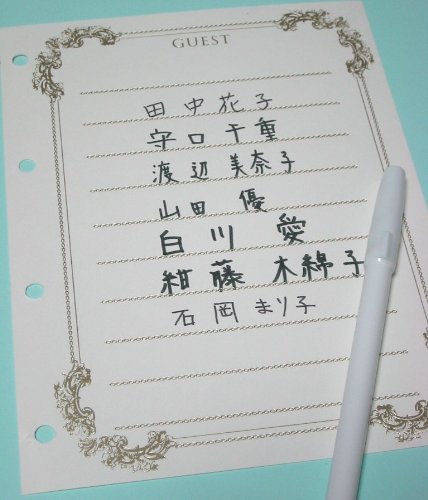 GUEST
田中花子
守口千重
渡辺美奈子
山田 優
白川 愛
紺藤 木綿子
石岡まり子